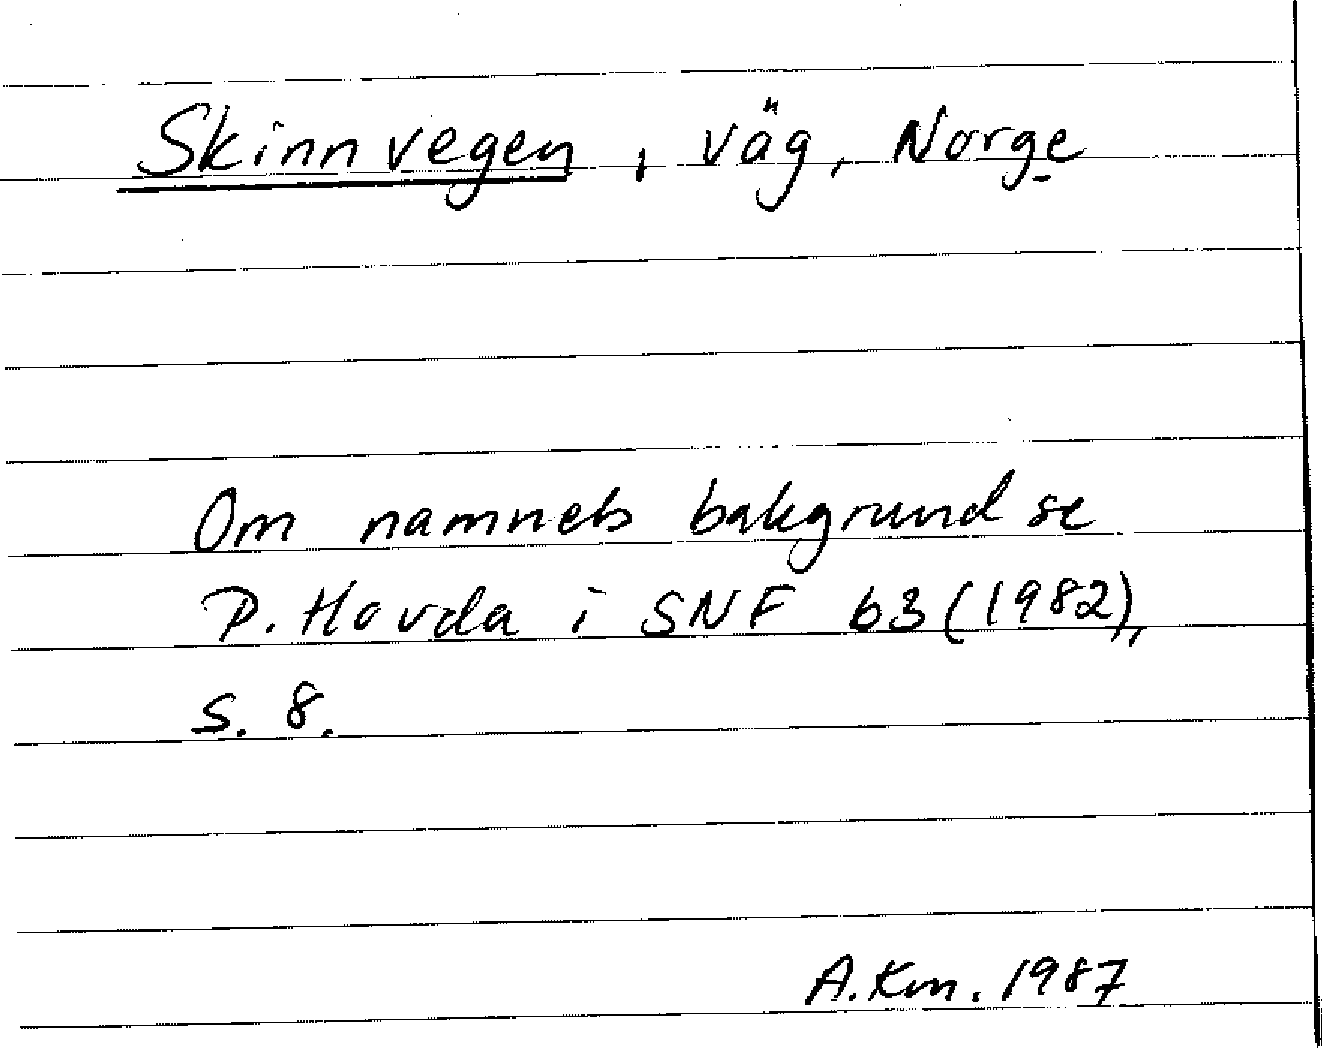 Skinnvegen, väg, Norge
Om namnets bakgrund se
P. Hovda i SNF 63 (1982),
s. 8.
A.Km. 1987